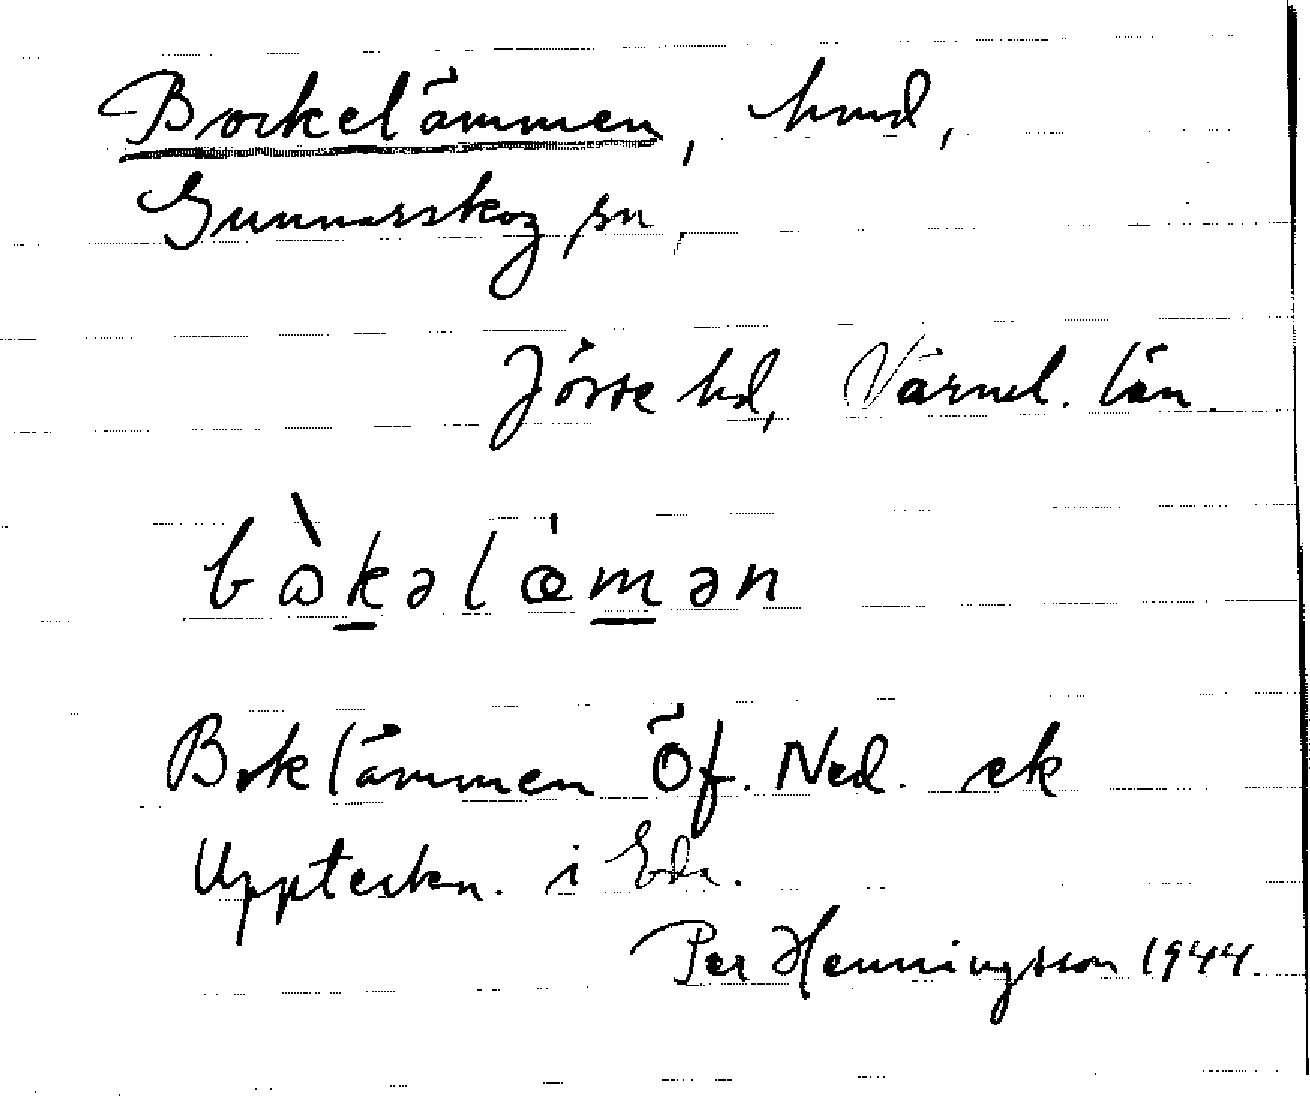 Bockelämmen, hmd,
Gunnarskog sn,
Jösse hd, Värml. län.
bɷ̀kəlœ́mən
Boklämmen Öf. Ned. ek
Uppteckn. i Eda.
Per Henningsson 1944.